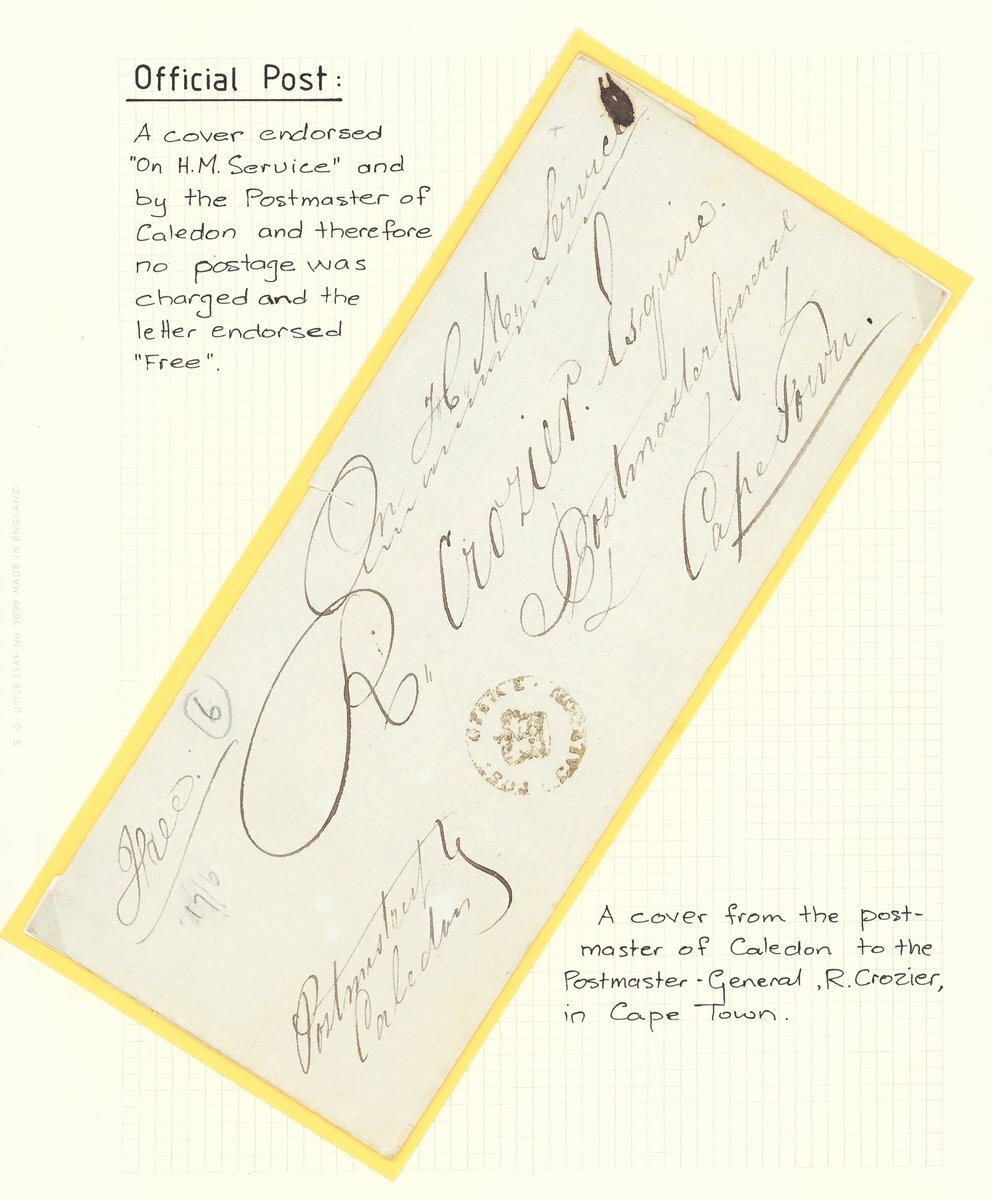 Official Post:
A cover endorsed
"On H.M. Service" and
by the Postmaster of
Caledon and therefore
no postage was
charged and the
letter endorsed
"Free".
On H. M. Service
R. Crozier Esquire.
Postmaster General
Cape Town.
Free.
6
POST OFFICE
Caledon
A cover from the post-
master of Caledon to the
Postmaster-General, R. Crozier,
in Cape Town.
S G UTILE LEAF No. 3099 MADE IN ENGLAND